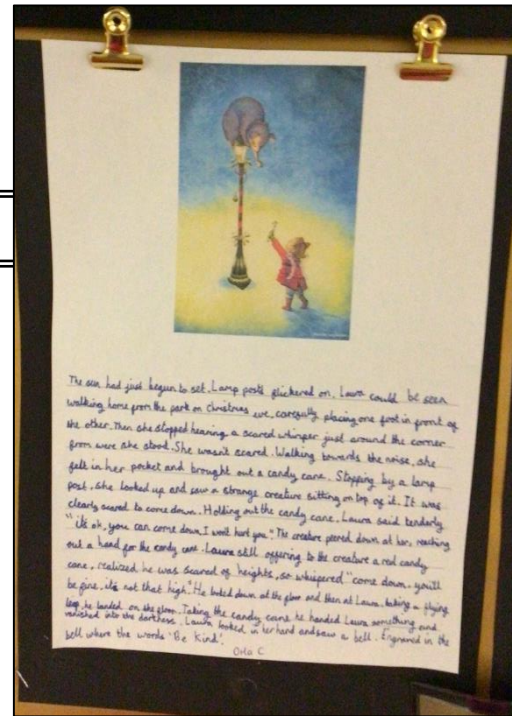 The sun had just begun to set. Lamp posts flickered on. Laura could be seen
walking home from the park on christmas eve, carefully placing one foot in front of
the other. Then she stopped hearing a scared whimper just around the corner
from were she stood. She wasn't scared. Walking towards the noise, she
felt in her pocket and brought out a candy cane. Stopping by a lamp
post, she looked up and saw a strange creature sitting on top of it. It was
clearly scared to come down. Holding out the candy cane, Laura said tenderly
"its ok, you can come down, I won't hurt you." The creature peered down at her, reaching
out a hand for the candy cane. Laura still offering to the creature a red candy
cane, realized he was scared of heights, so whispered "come down, you'll
be fine, it's not that high." He looked down at the floor and then at Laura, taking a flying
leap, he landed on the floor. Taking the candy cane he handed Laura something and
vanished into the darkness. Laura looked in her hand and saw a bell. Engraved in the
bell where the words 'Be Kind'.
Orla C